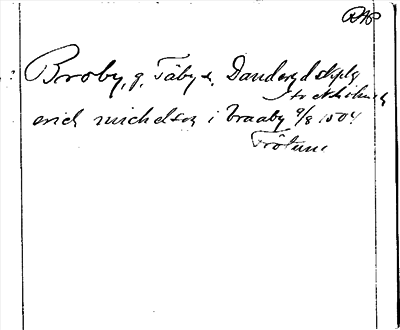 RAP
Broby, g. Täby s. Danderyd skplg
Stockholms
erich michelsson i braaby 9/8 1504
Frötuna